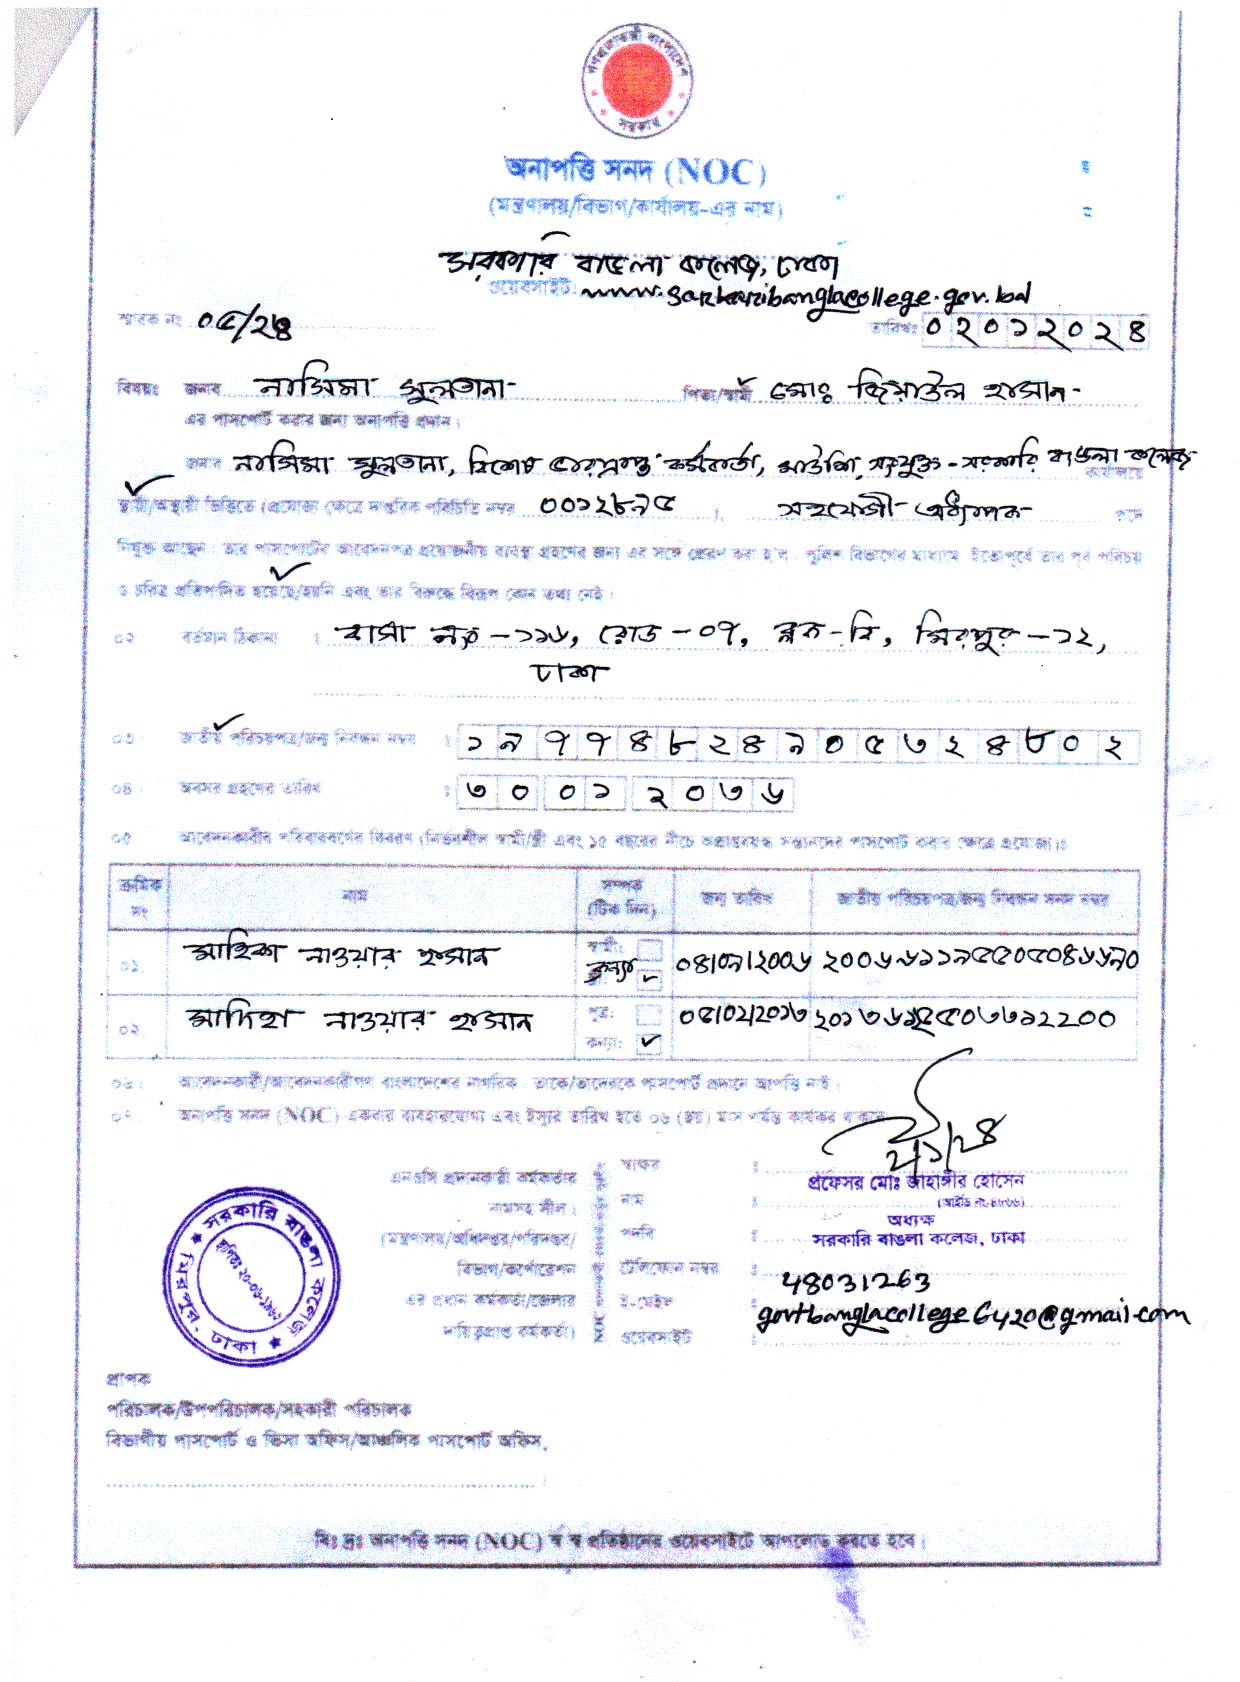 গণপ্রজাতন্ত্রী বাংলাদেশ
সরকার
অনাপত্তি সনদ (NOC)
(মন্ত্রণালয়/বিভাগ/কার্যালয়-এর নাম)
সরকারি বাঙলা কলেজ, ঢাকা
ওয়েবসাইট: www.sarkaribanglacollege.gov.bd
স্মারক নং ০৫/২৪ তারিখঃ ০২০১২০২৪
বিষয়ঃ জনাব নাসিমা সুলতানা পিতা/স্বামী মোঃ জিয়াউল হাসান
এর পাসপোর্ট করার জন্য অনাপত্তি প্রদান।
জনাব নাসিমা সুলতানা, বিশেষ ভারপ্রাপ্ত কর্মকর্তা, মাউশি, সংযুক্ত - সরকারি বাঙলা কলেজ কার্যালয়ে
স্থায়ী/অস্থায়ী ভিত্তিতে (প্রযোজ্য ক্ষেত্রে দাপ্তরিক পরিচিতি নম্বর ০০১২৮৭৫ ), সহযোগী অধ্যাপক পদে
নিযুক্ত আছেন। তার পাসপোর্টের আবেদনপত্র প্রয়োজনীয় ব্যবস্থা গ্রহণের জন্য এর সঙ্গে প্রেরণ করা হ'ল। পুলিশ বিভাগের মাধ্যমে ইতোপূর্বে তার পূর্ব পরিচয়
ও চরিত্র প্রতিপাদিত হয়েছে/হয়নি এবং তার বিরুদ্ধে বিরূপ কোন তথ্য নেই।
০২ বর্তমান ঠিকানা : বাসা নং - ১১৬, রোড - ০৭, ব্লক - বি, মিরপুর - ১২,
ঢাকা
০৩। জাতীয় পরিচয়পত্র/জন্ম নিবন্ধন নম্বর : ১৯৭৭৪৮২৪৯০৫৩২৪৮০২
০৪। অবসর গ্রহণের তারিখ : ৩০০১২০৩৬
০৫ আবেদনকারীর পরিবারবর্গের বিবরণ (নির্ভরশীল স্বামী/স্ত্রী এবং ১৫ বছরের নীচে অপ্রাপ্তবয়স্ক সন্তানদের পাসপোর্ট করার ক্ষেত্রে প্রযোজ্য)ঃ
ক্রমিক নং নাম সম্পর্ক (টিক দিন) জন্ম তারিখ জাতীয় পরিচয়পত্র/জন্ম নিবন্ধন সনদ নম্বর
০১. মাহিকা নাওয়ার হাসান স্বামী: কন্যা ০৪/০৭/২০০৬ ২০০৬৬১১৯৫৫০৫০৪৬৬৭০
০২. মাদিহা নাওয়ার হাসান পুত্র: কন্যা: ০৫/০২/২০১৩
০৬। আবেদনকারী/আবেদনকারীগণ বাংলাদেশের নাগরিক। তাকে/তাদেরকে পাসপোর্ট প্রদানে আপত্তি নাই।
০৭. অনাপত্তি সনদ (NOC) একবার ব্যবহারযোগ্য এবং ইস্যুর তারিখ হতে ০৬ (ছয়) মাস পর্যন্ত কার্যকর থাকবে
২/১/২৪
এনওসি প্রদানকারী কর্মকর্তার স্বাক্ষর :
নামসহ সীল। নাম : প্রফেসর মোঃ জাহাঙ্গীর হোসেন
(আইডি নং-৪৮৩৬)
(মন্ত্রণালয়/অধিদপ্তর/পরিদপ্তর/ পদবি : অধ্যক্ষ
সরকারি বাঙলা কলেজ, ঢাকা
বিভাগ/কর্পোরেশন টেলিফোন নম্বর : 48031263
এর প্রধান কর্মকর্তা/জেলার ই-মেইল : govtbanglacollege6420@gmail.com
দায়িত্বপ্রাপ্ত কর্মকর্তা) ওয়েবসাইট :
সরকারি বাঙলা কলেজ
মিরপুর, ঢাকা
প্রাপক
পরিচালক/উপপরিচালক/সহকারী পরিচালক
বিভাগীয় পাসপোর্ট ও ভিসা অফিস/আঞ্চলিক পাসপোর্ট অফিস,
বিঃ দ্রঃ অনাপত্তি সনদ (NOC) স্ব স্ব প্রতিষ্ঠানের ওয়েবসাইটে আপলোড করতে হবে।